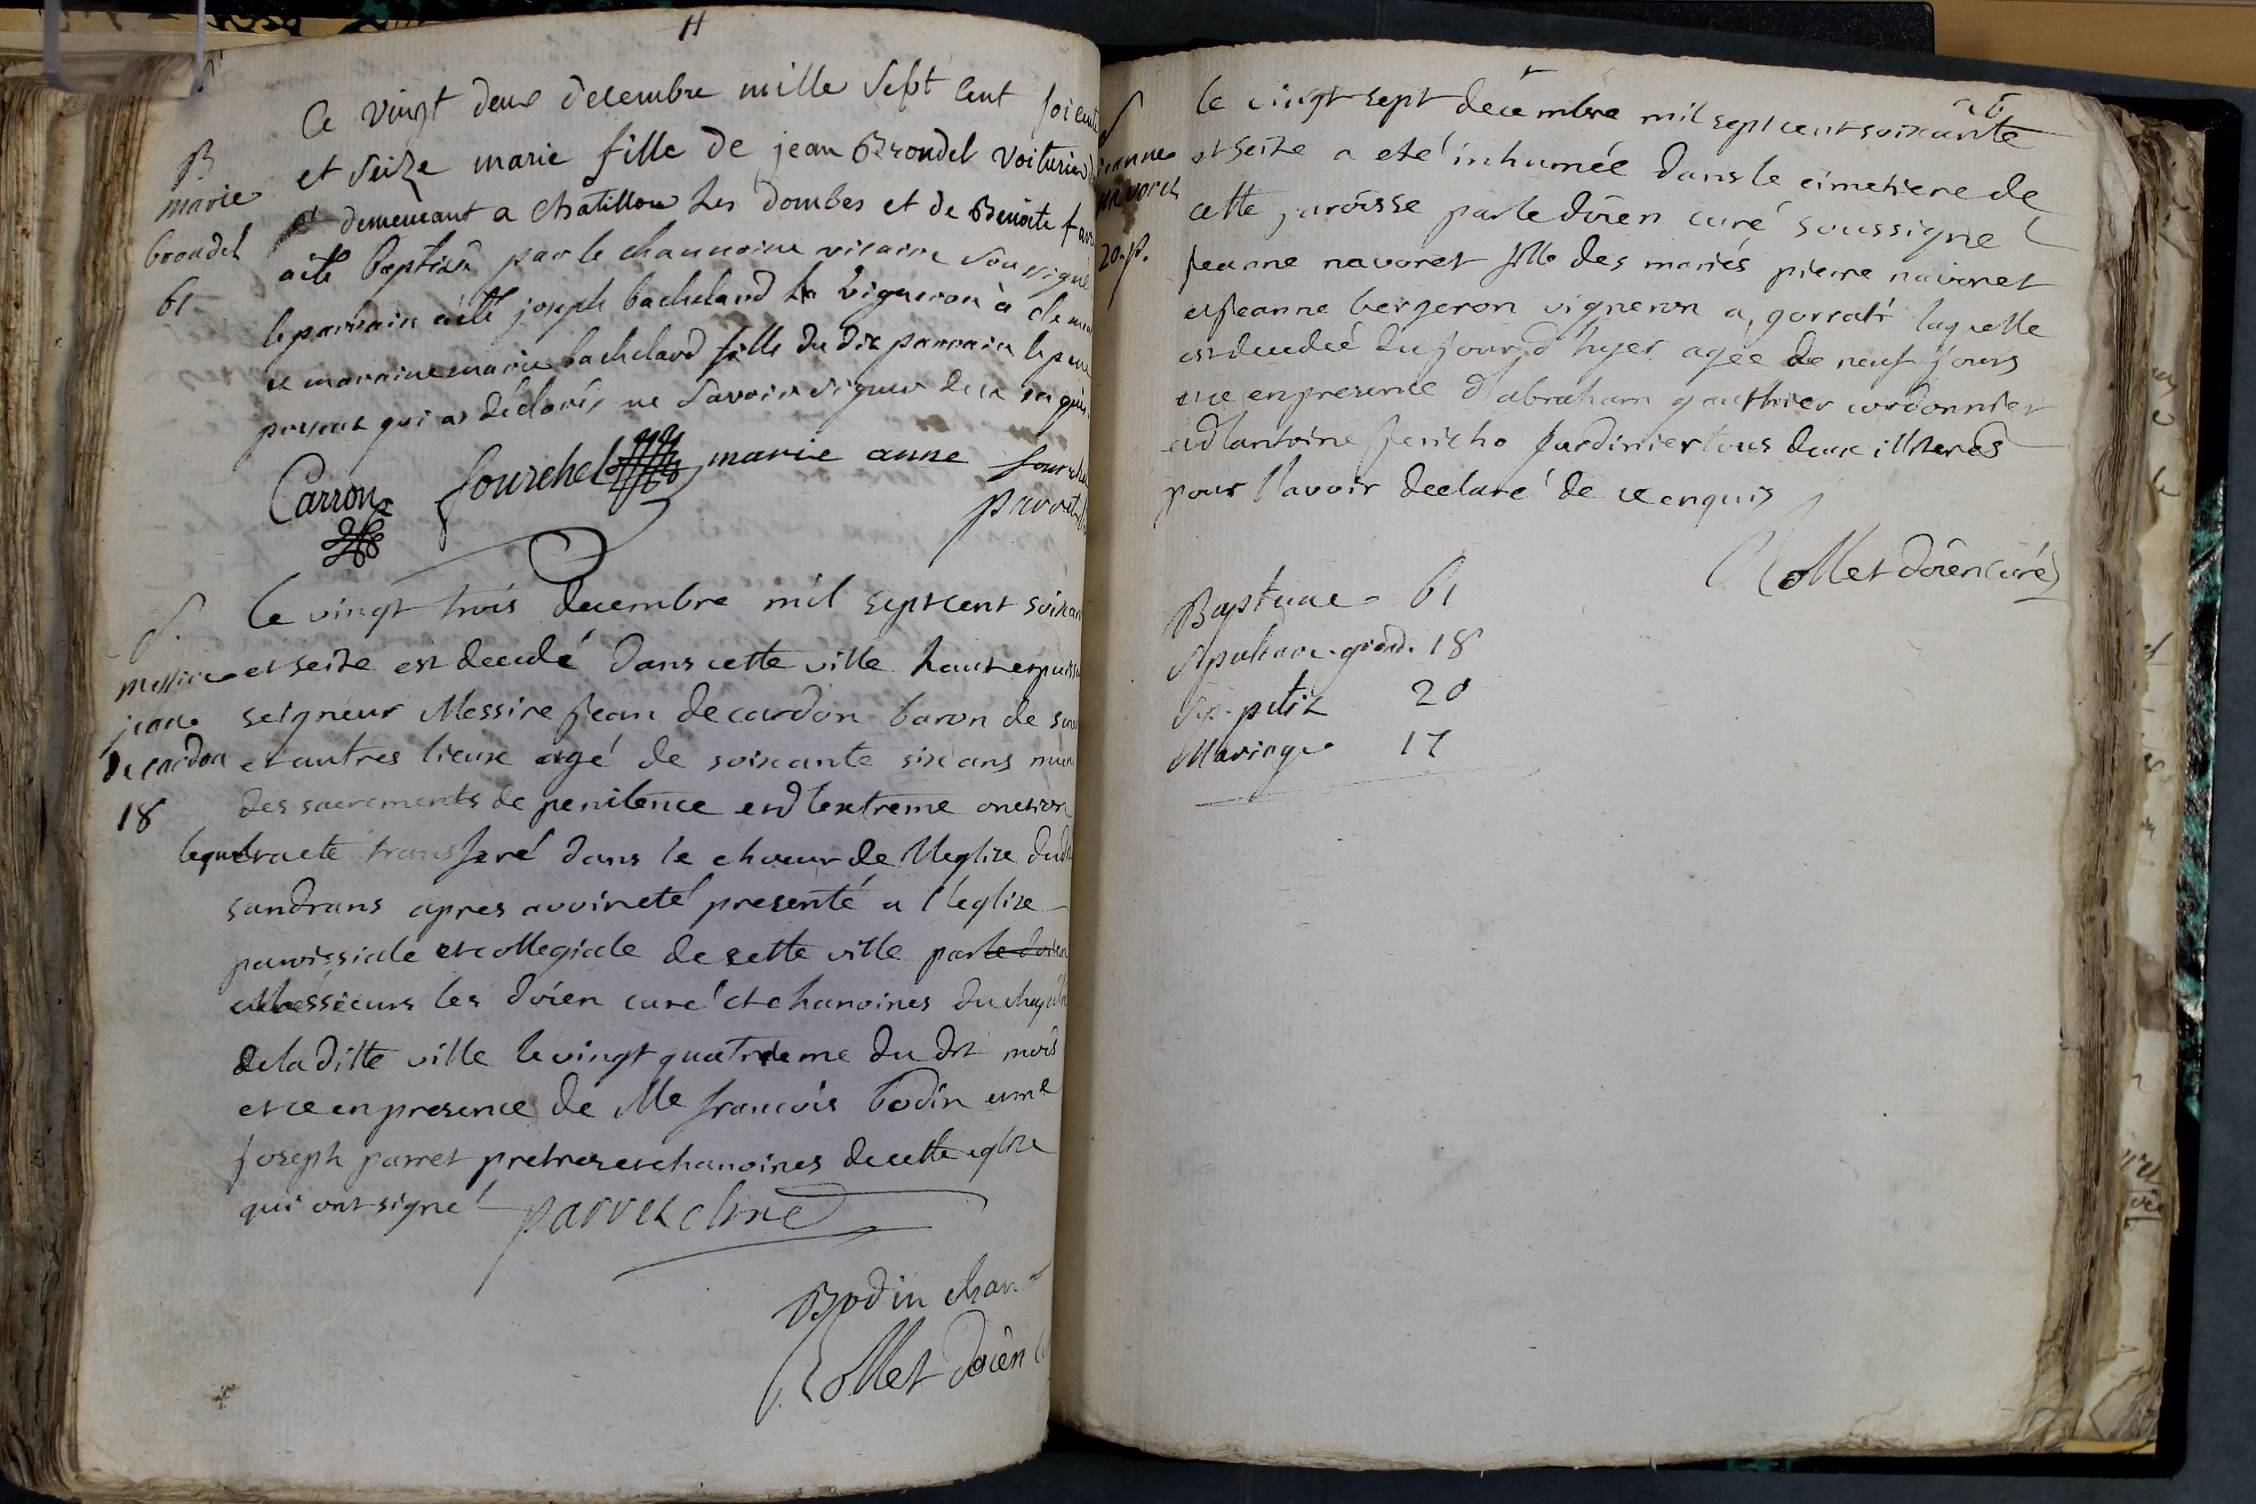 Ce vingt deux decembre mille sept cent soixante
B
et seize marie fille de jean Brondel voiturier
marie
demeurant a châtillon les dombes et de Benoite
brondel
a été baptisée par le chanoine vicaire soussigné
61
le parrain a été joseph bachelard vigneron à
et marraine marie bachelard fille du dit parrain le pere
present qui a déclaré ne savoir signer de ce requis
Carron fourchet marie anne
parret
S.
le vingt trois decembre mil sept cent soixan
messire
et seize est decedé dans cette ville haut et puissa
jean
seigneur Messire Jean de cardon baron de san
de cardon
et autres lieux agé de soixante six ans muni
18
des sacrements de penitence et d'extreme onction
lequel a eté transferé dans le choeur de l'eglise dud
sandrans apres avoir eté presenté a l'eglise
paroissiale et collegiale de cette ville par le doien
Messieurs les doïen curé et chanoines du chapitre
de la ditte ville le vingt quatrieme du dit mois
et ce en presence de Me françois bodin et me
Joseph parret pretres et chanoines de cette eglise
qui ont signé parret chne
Bodin chan
Collet doïen
26
le vingt sept decembre mil sept cent soixante
S
et seize a eté inhumée dans le cimetiere de
jeanne
navoret
cette paroisse par le doïen curé soussigné
20. p.
Jeanne navoret fille des mariés pierre navoret
et Jeanne bergeron vigneron a laquelle
est decedée du jour d'hyer agée de neuf jours
et ce en presence d'abraham gauthier cordonnier
et d'antoine Jericho Jardinier tous deux illiterés
pour l'avoir declaré de ce enquis
Collet doïen curé
Bapteme 61
Sepulture. grand. 18
Sep. petit 20
Mariage 17